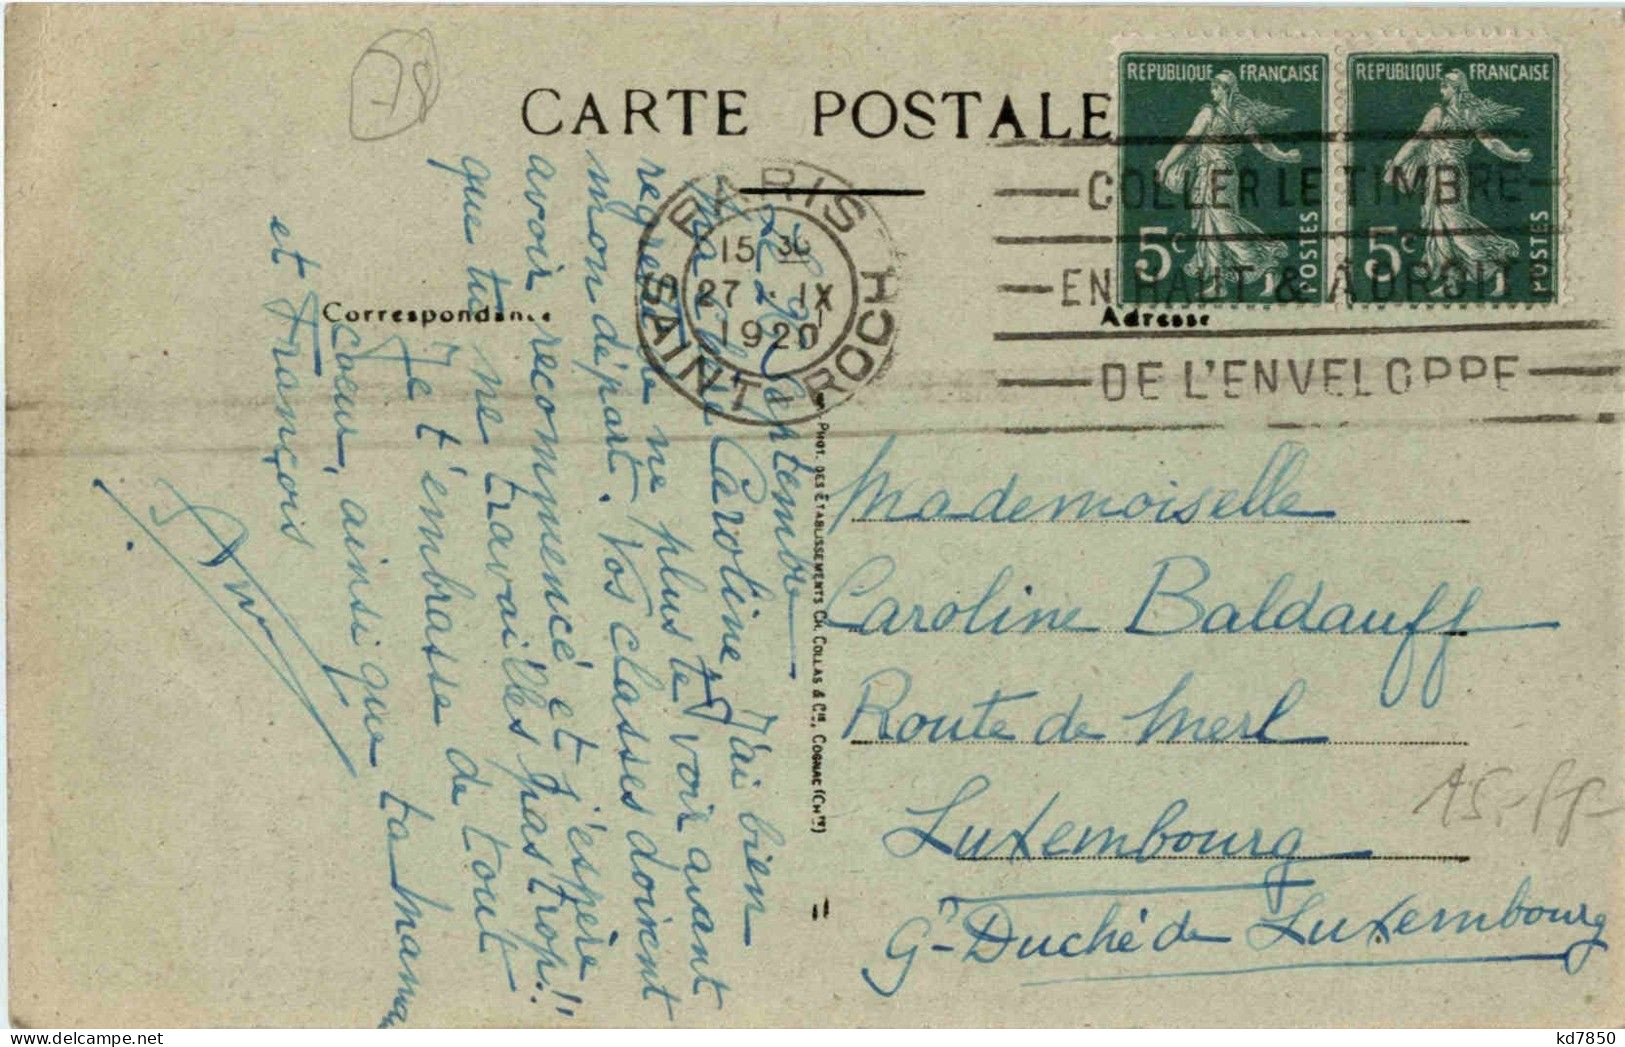 CARTE POSTALE
REPUBLIQUE FRANÇAISE
5c
POSTES
REPUBLIQUE FRANÇAISE
5c
POSTES
PARIS
15 30
27 - IX
1920
SAINT ROCH
COLLER LE TIMBRE
EN HAUT & A DROITE
DE L'ENVELOPPE
Correspondance
Adresse
Le 26 Septembre
Ma chère Caroline, J'ai bien
regretté ne plus te voir avant
mon départ. Vos classes doivent
avoir recommencé et j'espère
que tu ne travailles pas trop!!
Je t'embrasse de tout
coeur, ainsi que ta maman
et François
PHOT. DES ÉTABLISSEMENTS CH. COLLAS & Cie, COGNAC (Chte)
Mademoiselle
Caroline Baldauff
Route de Merl
Luxembourg
Gd Duché de Luxembourg
kd7850